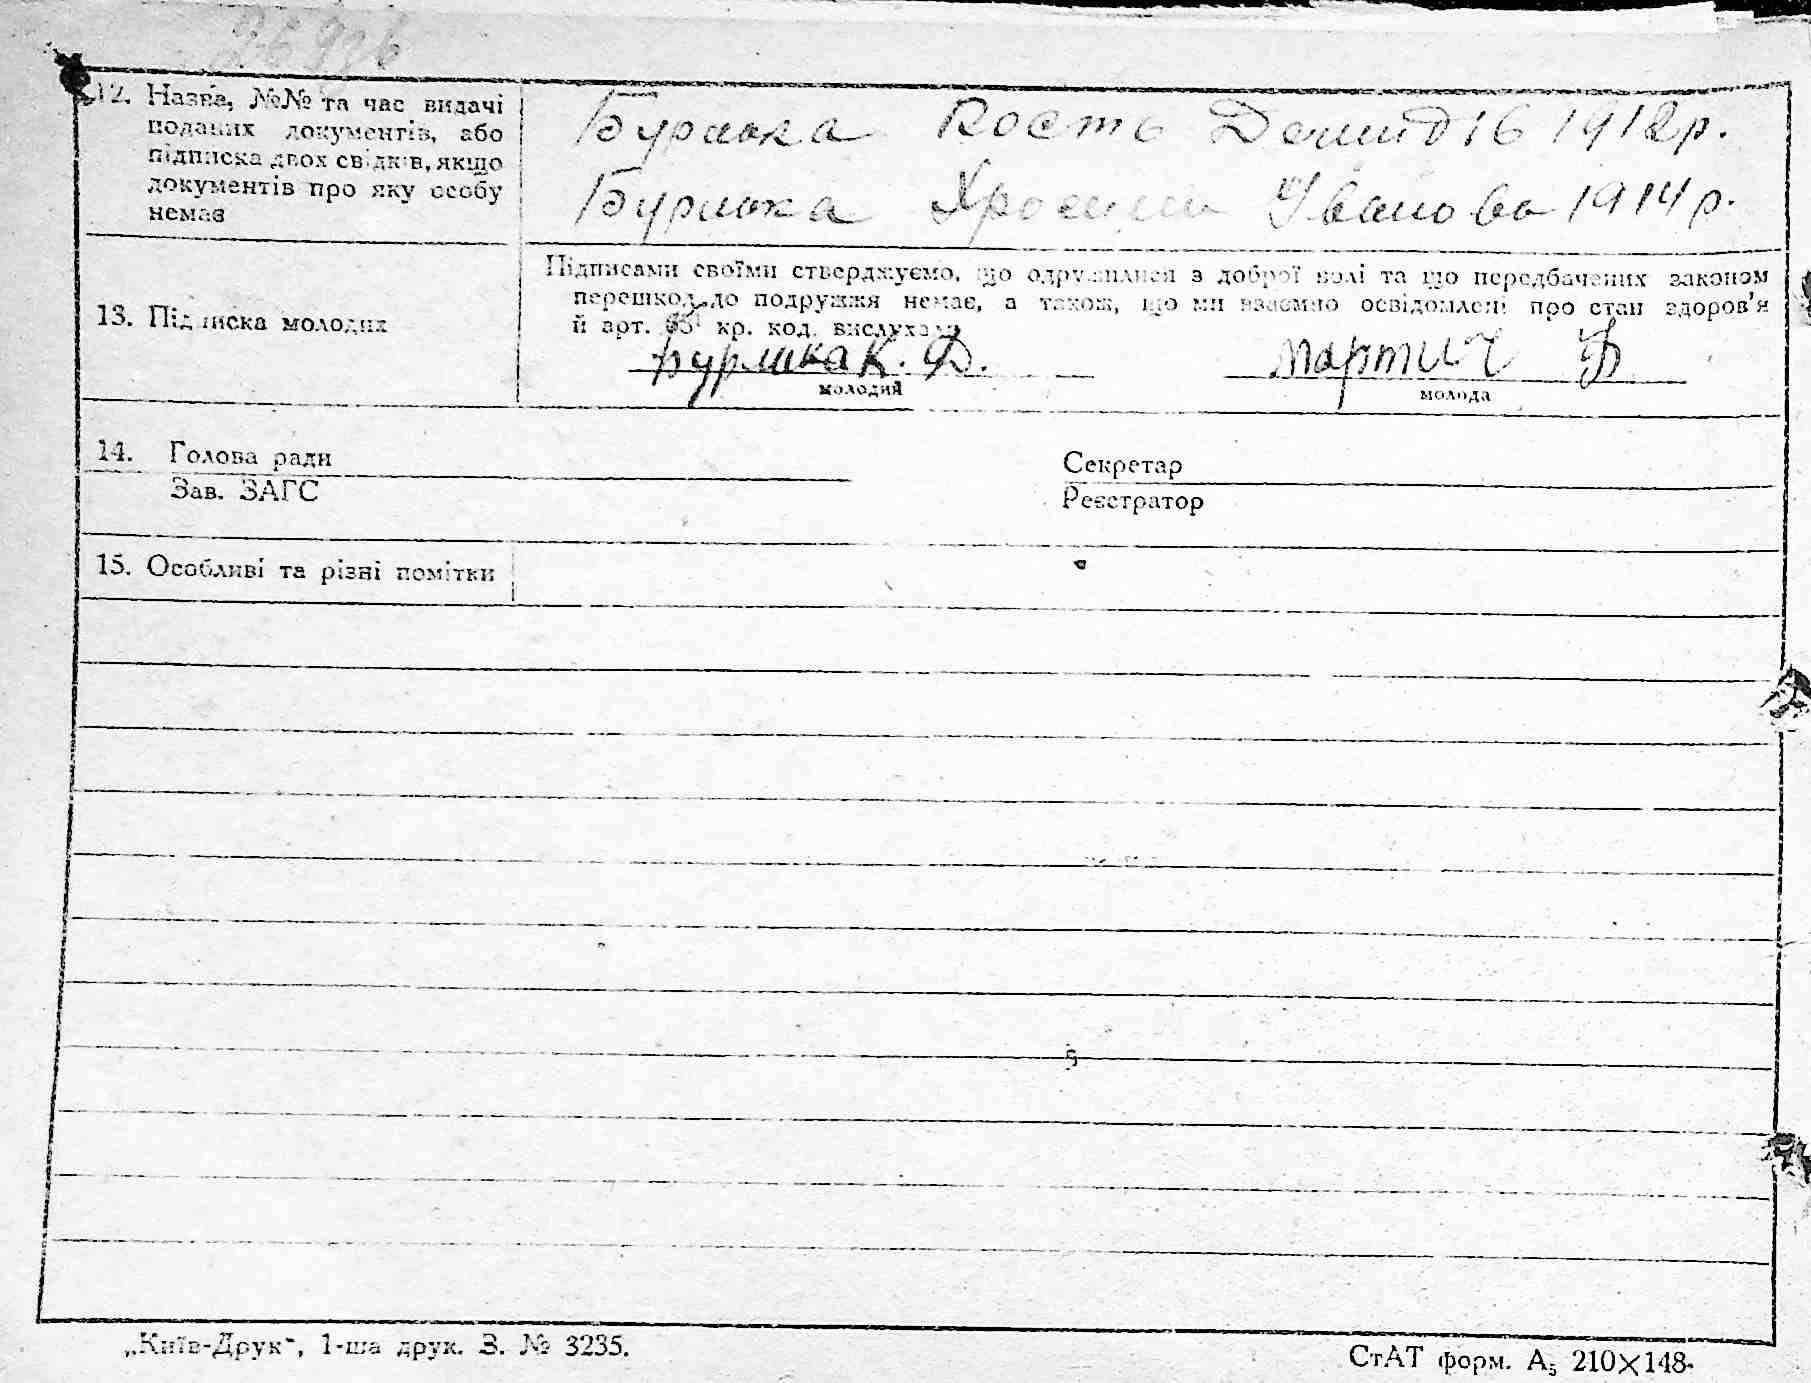 12. Назва, №№ та час видачі
поданих документів, або
підписка двох свідків, якщо
документів про яку особу
немає
Бурлака Кость Демидів 1912 р.
Бурлака Хросина Іванова 1914 р.
13. Підписка молодих
Підписами своїми стверджуємо, що одружилися з доброї волі та що передбачених законом
перешкод до подружжя немає, а також, що ми взаємно освідомлені про стан здоров'я
й арт. кр. код. вислухали
Бурлака К. Д.
Мартич
молодий
молода
14. Голова ради
Секретар
Зав. ЗАГС
Реєстратор
15. Особливі та різні помітки
„Київ-Друк“, 1-ша друк. З. № 3235.
СтАТ форм. А₅ 210×148.